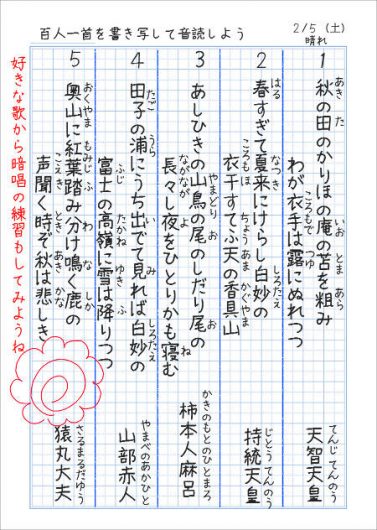 百人一首を書き写して音読しよう
2/5 (土)
晴れ
1 秋の田のかりほの庵の苫を粗み
あき た いお とま あら
わが衣手は露にぬれつつ
ころもで つゆ
天智天皇
てんじ てんのう
2 春すぎて夏来にけらし白妙の
はる なつき しろたえ
衣干すてふ天の香具山
ころもほ ちょう あま かぐやま
持統天皇
じとう てんのう
3 あしひきの山鳥の尾のしだり尾の
やまどり お お
長々し夜をひとりかも寝む
ながなが よ ね
柿本人麻呂
かきのもとのひとまろ
4 田子の浦にうち出でて見れば白妙の
たご うら い み しろたえ
富士の高嶺に雪は降りつつ
ふじ たかね ゆき ふ
山部赤人
やまべのあかひと
5 奥山に紅葉踏み分け鳴く鹿の
おくやま もみじ ふ わ な しか
声聞く時ぞ秋は悲しき
こえき とき あき かな
猿丸大夫
さるまるだゆう
好きな歌から暗唱の練習もしてみようね